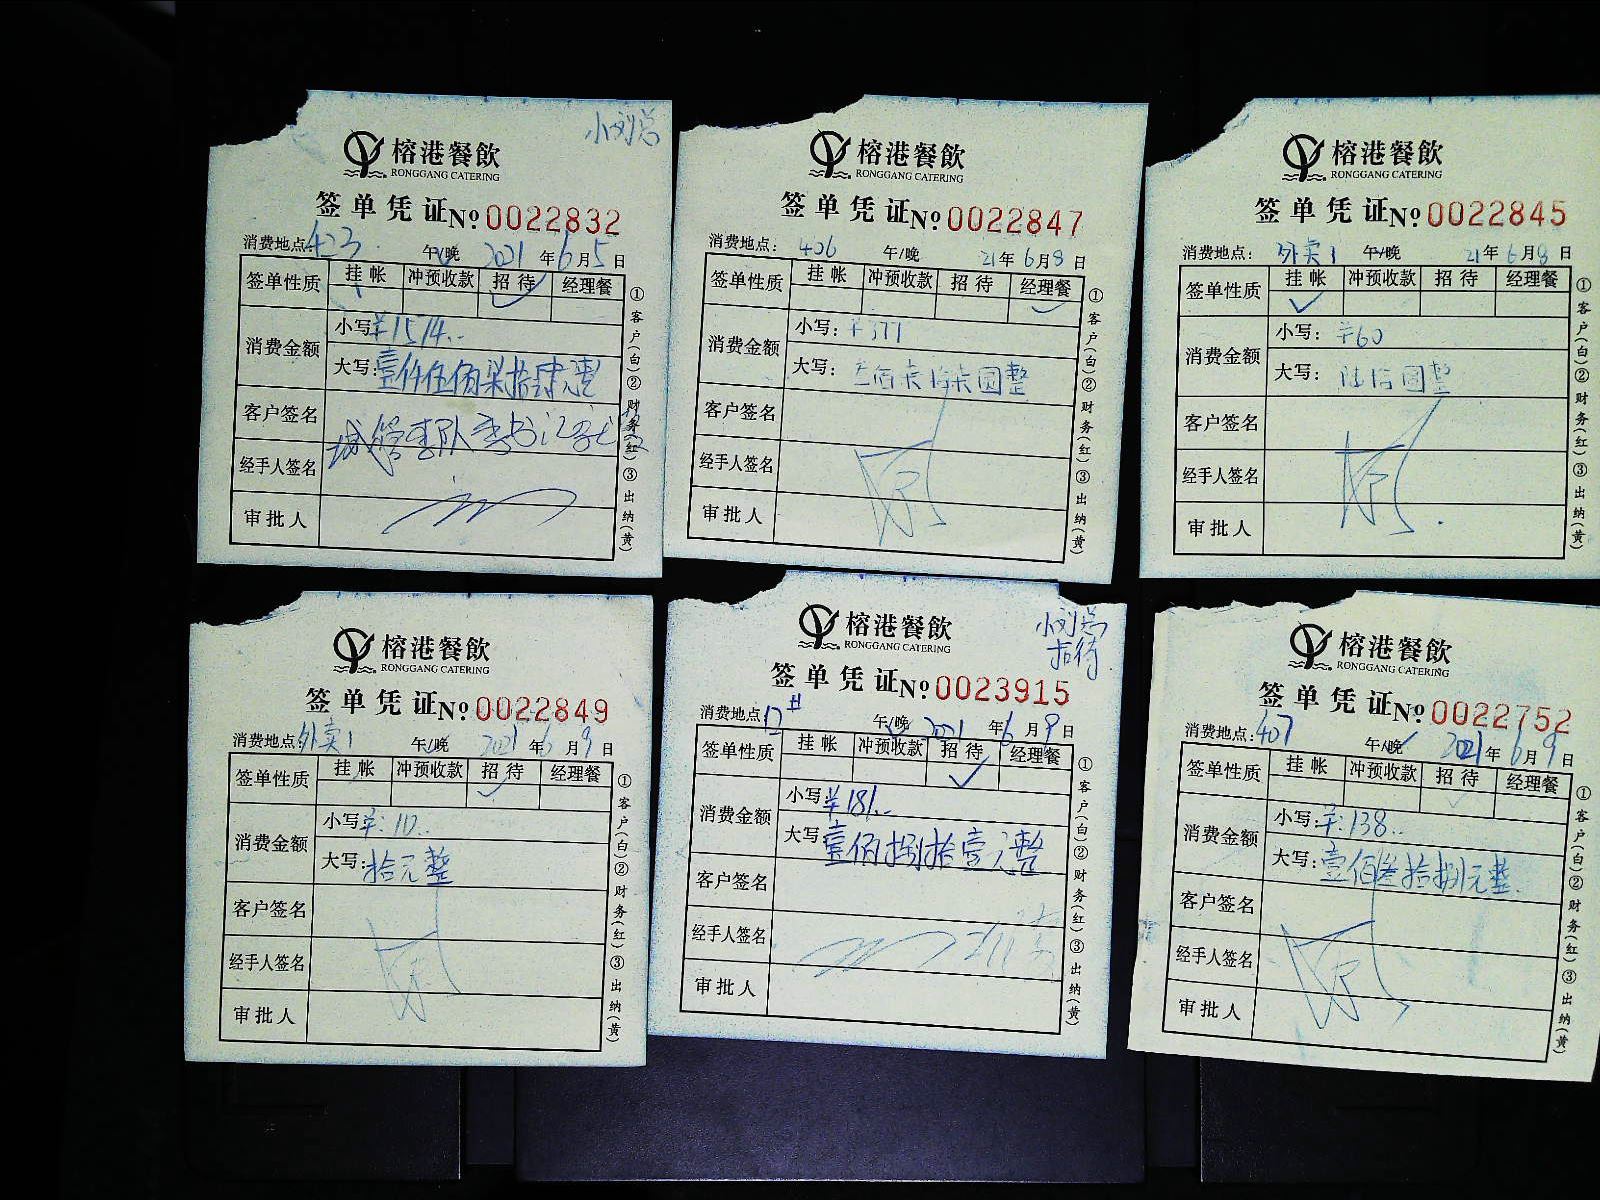 小刘总
榕港餐飲
RONGGANG CATERING
签单凭证 No 0022832
消费地点: 423 午/晚 2021年6月5日
签单性质 挂帐 冲预收款 招待 经理餐
消费金额 小写: ¥1574..
大写: 壹仟伍佰柒拾肆元整
客户签名
经手人签名
审批人
①客户(白)②财务(红)③出纳(黄)
榕港餐飲
RONGGANG CATERING
签单凭证 No 0022847
消费地点: 406 午/晚 21年6月8日
签单性质 挂帐 冲预收款 招待 经理餐
消费金额 小写: ¥377
大写: 叁佰柒拾柒圆整
客户签名
经手人签名
审批人
①客户(白)②财务(红)③出纳(黄)
榕港餐飲
RONGGANG CATERING
签单凭证 No 0022845
消费地点: 外卖1 午/晚 21年6月8日
签单性质 挂帐 冲预收款 招待 经理餐
消费金额 小写: ¥60
大写: 陆拾圆整
客户签名
经手人签名
审批人
①客户(白)②财务(红)③出纳(黄)
榕港餐飲
RONGGANG CATERING
签单凭证 No 0022849
消费地点: 外卖1 午/晚 2021年6月9日
签单性质 挂帐 冲预收款 招待 经理餐
消费金额 小写: ¥:10..
大写: 拾元整
客户签名
经手人签名
审批人
①客户(白)②财务(红)③出纳(黄)
小刘总
招待
榕港餐飲
RONGGANG CATERING
签单凭证 No 0023915
消费地点: 12# 午/晚 2021年6月9日
签单性质 挂帐 冲预收款 招待 经理餐
消费金额 小写: ¥181..
大写: 壹佰捌拾壹元整
客户签名
经手人签名
审批人
①客户(白)②财务(红)③出纳(黄)
榕港餐飲
RONGGANG CATERING
签单凭证 No 0022752
消费地点: 407 午/晚 2021年6月9日
签单性质 挂帐 冲预收款 招待 经理餐
消费金额 小写: ¥:138..
大写: 壹佰叁拾捌元整
客户签名
经手人签名
审批人
①客户(白)②财务(红)③出纳(黄)